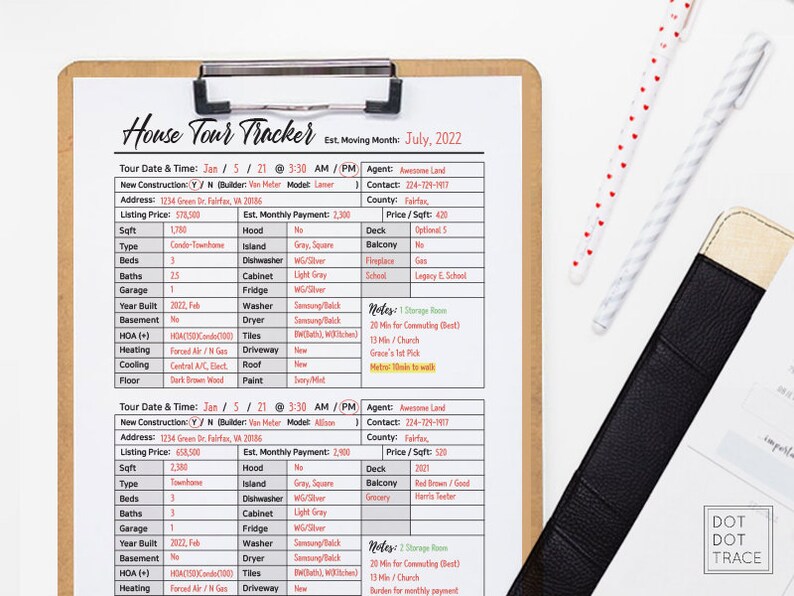 House Tour Tracker Est. Moving Month: July, 2022
Tour Date & Time: Jan / 5 / 21 @ 3:30 AM / PM Agent: Awesome Land
New Construction: Y / N (Builder: Van Meter Model: Lamer ) Contact: 224-729-1917
Address: 1234 Green Dr. Fairfax, VA 20186 County: Fairfax,
Listing Price: 578,500 Est. Monthly Payment: 2,300 Price / Sqft: 420
Sqft 1,780 Hood No Deck Optional 5
Type Condo-Townhome Island Gray, Square Balcony No
Beds 3 Dishwasher WG/Silver Fireplace Gas
Baths 2.5 Cabinet Light Gray School Legacy E. School
Garage 1 Fridge WG/Silver
Year Built 2022, Feb Washer Samsung/Balck Notes: 1 Storage Room
Basement No Dryer Samsung/Balck 20 Min for Commuting (Best)
HOA (+) HOA(150)Condo(100) Tiles BW(Bath), W(Kitchen) 13 Min / Church
Heating Forced Air / N Gas Driveway New Grace's 1st Pick
Cooling Central A/C, Elect. Roof New Metro: 10min to walk
Floor Dark Brown Wood Paint Ivory/Mint
Tour Date & Time: Jan / 5 / 21 @ 3:30 AM / PM Agent: Awesome Land
New Construction: Y / N (Builder: Van Meter Model: Allison ) Contact: 224-729-1917
Address: 1234 Green Dr. Fairfax, VA 20186 County: Fairfax,
Listing Price: 658,500 Est. Monthly Payment: 2,900 Price / Sqft: 520
Sqft 2,380 Hood No Deck 2021
Type Townhome Island Gray, Square Balcony Red Brown / Good
Beds 3 Dishwasher WG/Silver Grocery Harris Teeter
Baths 3 Cabinet Light Gray
Garage 1 Fridge WG/Silver
Year Built 2022, Feb Washer Samsung/Balck Notes: 2 Storage Room
Basement No Dryer Samsung/Balck 20 Min for Commuting (Best)
HOA (+) HOA(150)Condo(100) Tiles BW(Bath), W(Kitchen) 13 Min / Church
Heating Forced Air / N Gas Driveway New Burden for monthly payment
importa
DOT
DOT
TRACE